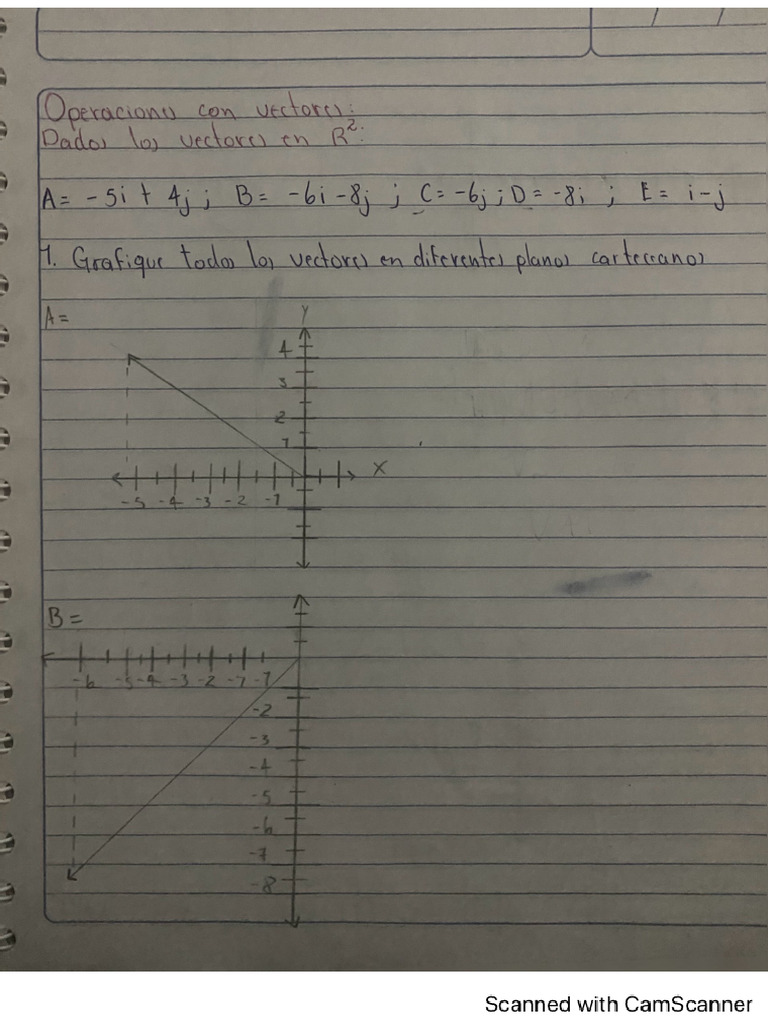 Operaciones con vectores:
Dados los vectores en R²:
A = -5i + 4j ; B = -6i -8j ; C = -6j ; D = -8i ; E = i-j
1. Grafique todos los vectores en diferentes planos cartecianos
A =
Y
4
3
2
1
X
-5 -4 -3 -2 -1
B =
-6 -5 -4 -3 -2 -1 -1
-2
-3
-4
-5
-6
-7
-8
Scanned with CamScanner